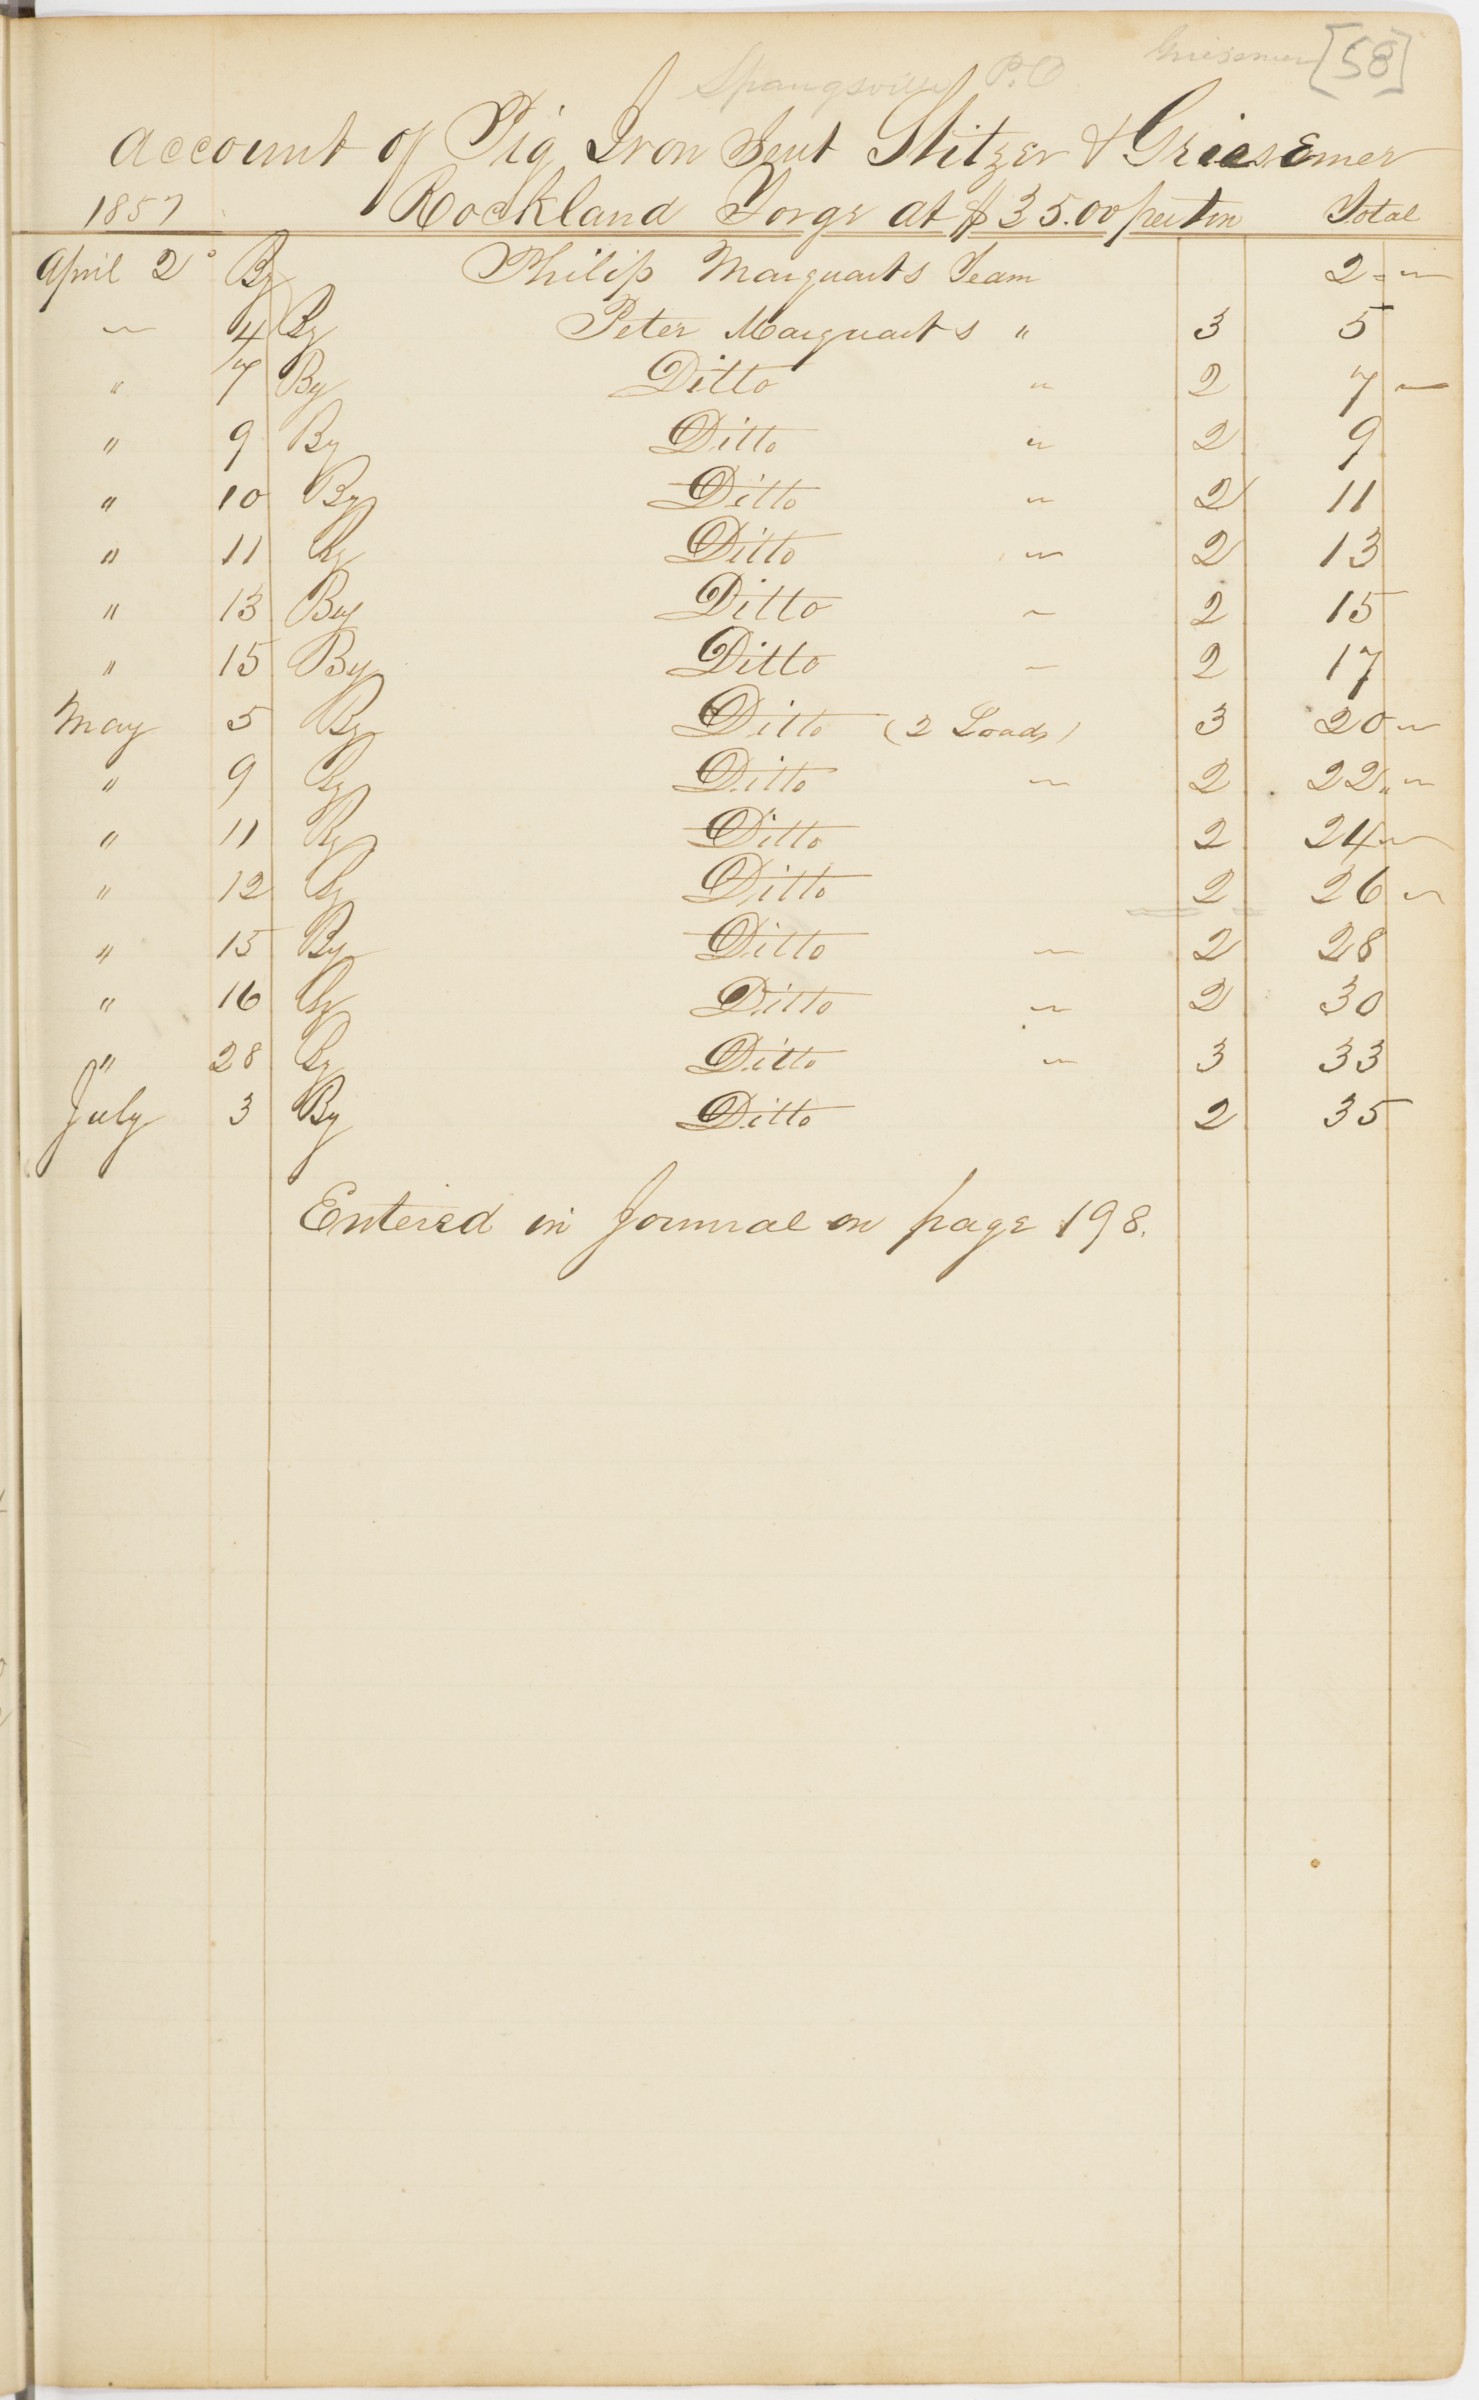 Spangsville P.O Griesemer [58]
Account of Pig Iron Sent Stitzer & Griesemer
1857 Rockland Forge at $35.00 per ton Total
April 2 By Philip Marquarts Team 2 "
" 4 By Peter Marquarts " 3 5
" 7 By Ditto " 2 7 "
" 9 By Ditto " 2 9
" 10 By Ditto " 2 11
" 11 By Ditto " 2 13
" 13 By Ditto " 2 15
" 15 By Ditto " 2 17
May 5 By Ditto (2 Loads) 3 20 "
" 9 By Ditto " 2 22 "
" 11 By Ditto 2 24 "
" 12 By Ditto 2 26 "
" 15 By Ditto " 2 28
" 16 By Ditto " 2 30
" 28 By Ditto " 3 33
July 3 By Ditto 2 35
Entered in Journal on page 198.